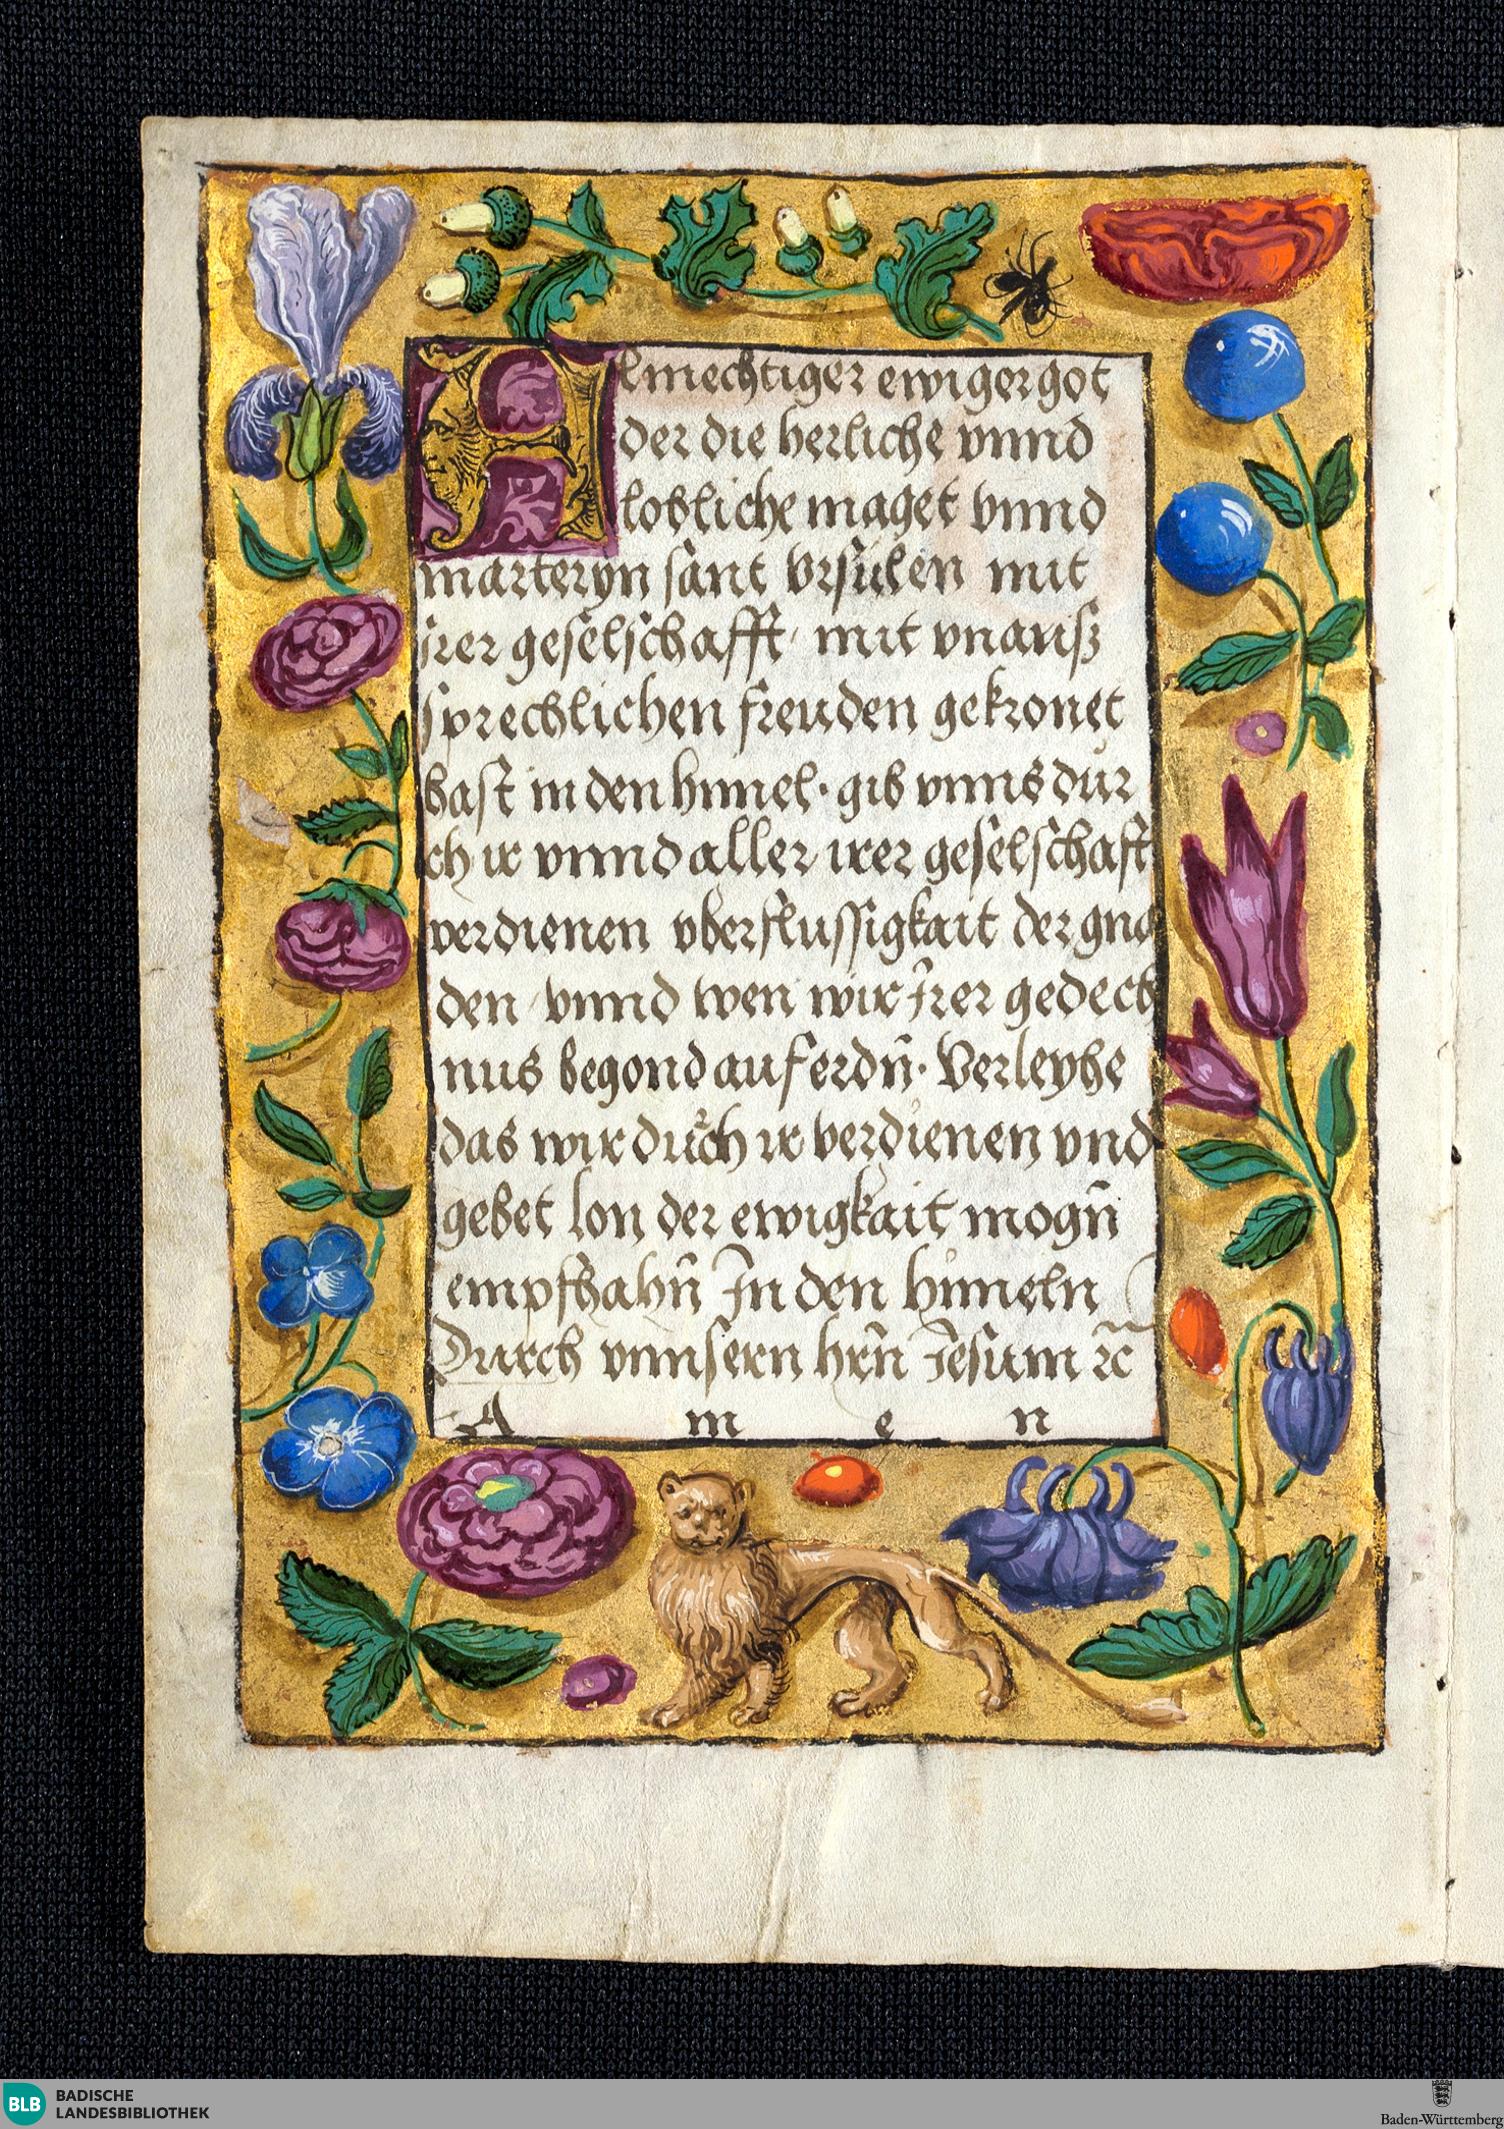 Almechtiger ewiger got
der die herliche vnnd
lobliche maget vnnd
marteryn sant vrsulen mit
jrer geselschafft mit vnausz
sprechlichen freuden gekronet
hast in den himel · gib vnns dur
ch ir vnnd aller irer geselschaft
verdienen vberflussigkait der gna
den vnnd wen wir Jrer gedech
nus begond auf erdn̄ · Verleyhe
das wir durch ir verdienen vnd
gebet lon der ewigkait mogn̄
empfhahn̄ Jn den himeln
Durch vnnsern hrn̄ Jesum ꝛc̄
A m e n
BLB BADISCHE
LANDESBIBLIOTHEK
Baden-Württemberg